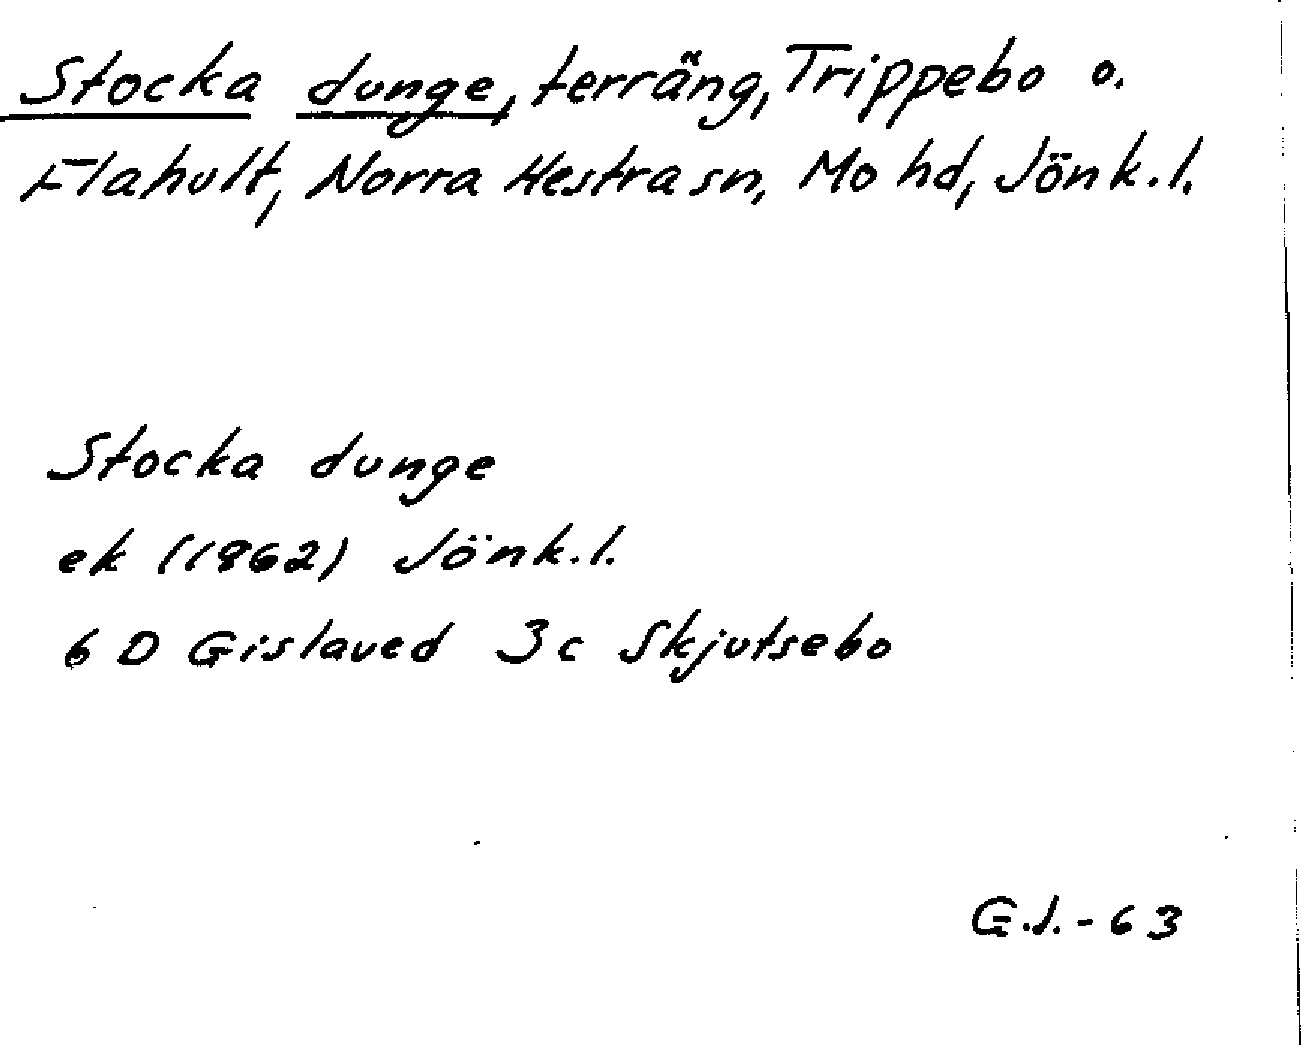 Stocka dunge, terräng, Trippebo o.
Flahult, Norra Hestra sn, Mo hd, Jönk.l.
Stocka dunge
ek (1962) Jönk.l.
6 D Gislaved 3c Skjutsebo
G.J.-63